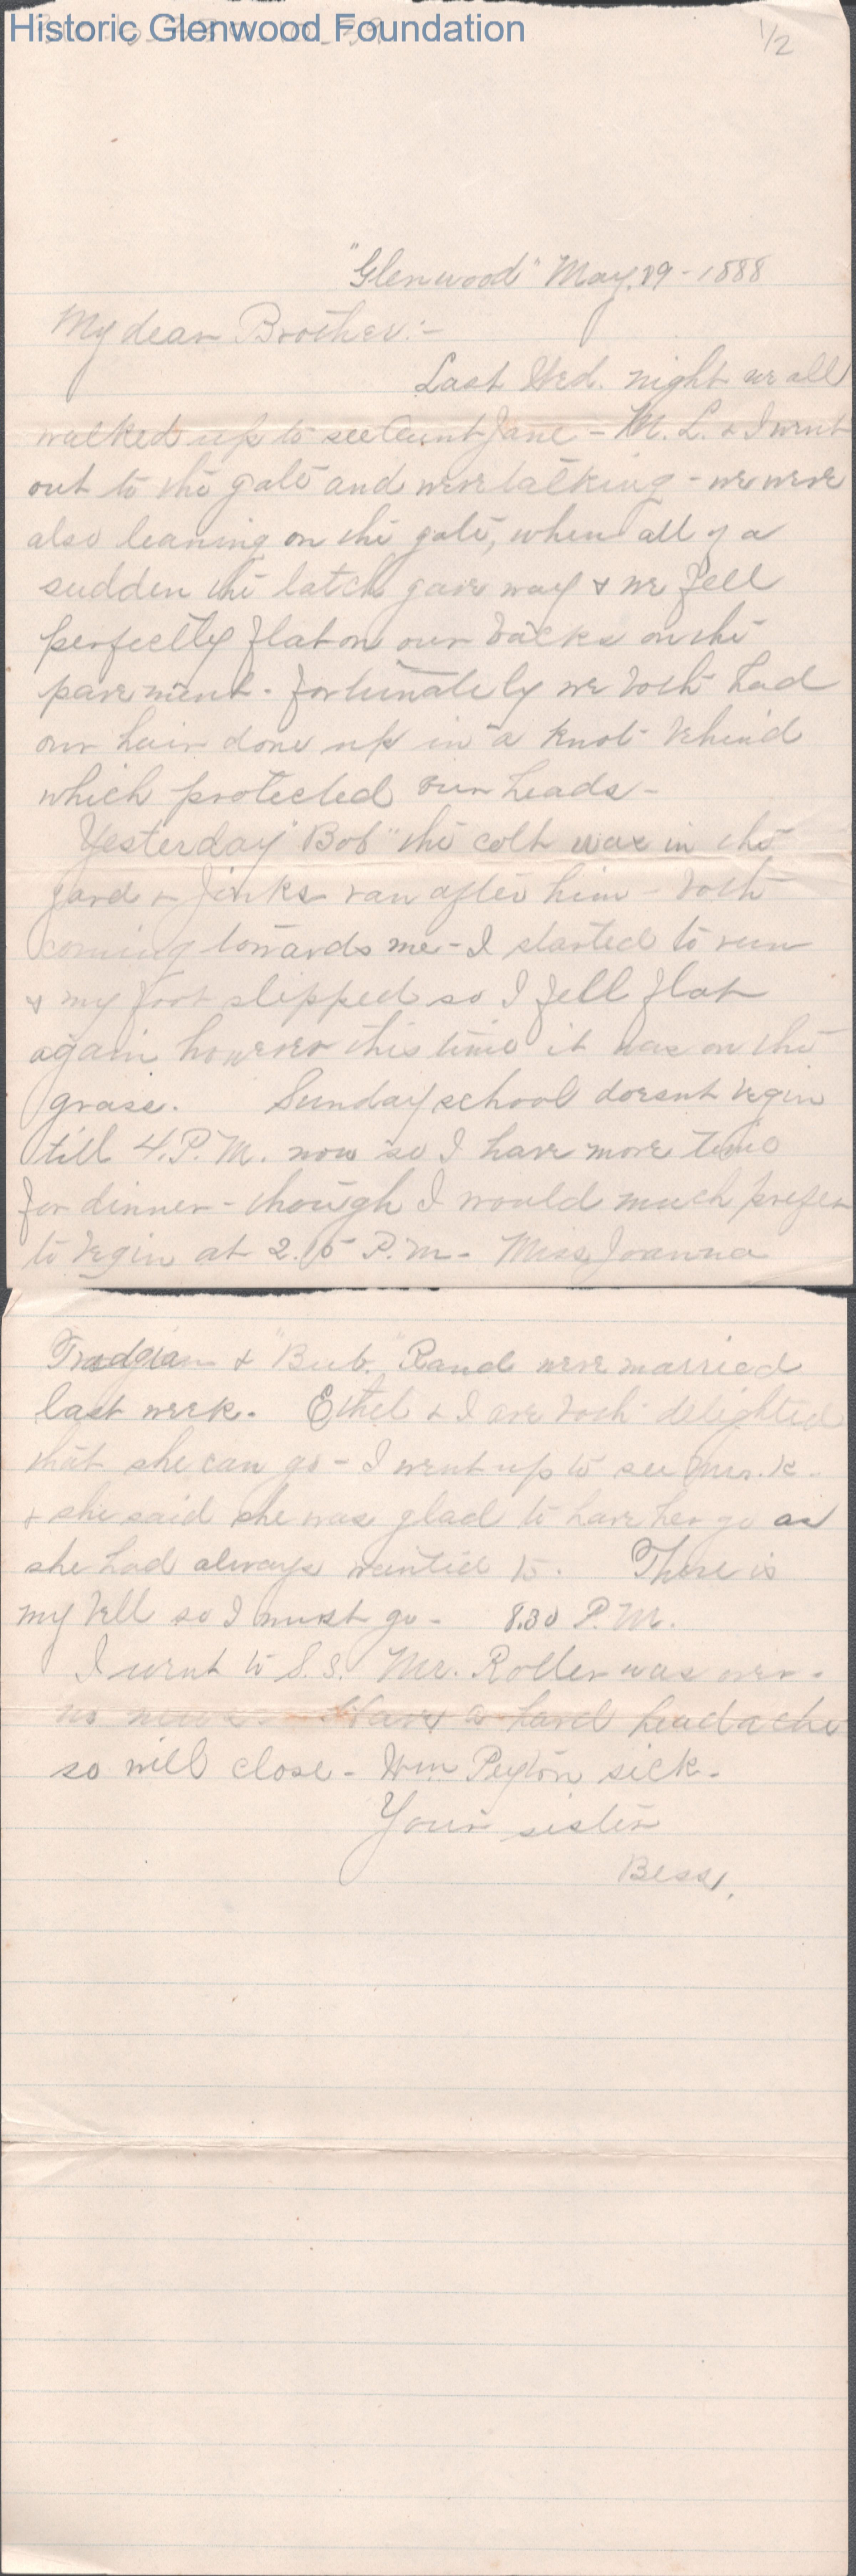 Historic Glenwood Foundation
1/2
"Glenwood" May. 29 - 1888
My dear Brother:-
Last Wed. night we all
walked up to see Aunt Jane - M. L. & I went
out to the gate and were talking - we were
also leaning on the gate, when all of a
sudden the latch gave way & we fell
perfectly flat on our backs on the
pavement. Fortunately we both had
our hair done up in a knot behind
which protected our heads -
Yesterday "Bob" the colt was in the
yard & Jinks ran after him - both
coming towards me - I started to run
& my foot slipped so I fell flat
again however this time it was on the
grass. Sunday school doesnt begin
till 4. P. M. now so I have more time
for dinner - though I would much prefer
to begin at 2.15 P. M. Miss Joanna
& "Bub." Rand were married
last week. Ethel & I are both delighted
that she can go - I went up to see Mrs. K.
& she said she was glad to have her go as
she had always wanted to. There is
my bell so I must go - 8.30 P. M.
I went to S. S. Mr. Roller was over.
no news. Have a hard headache
so will close - Wm Peyton sick.
Your sister
Bess.